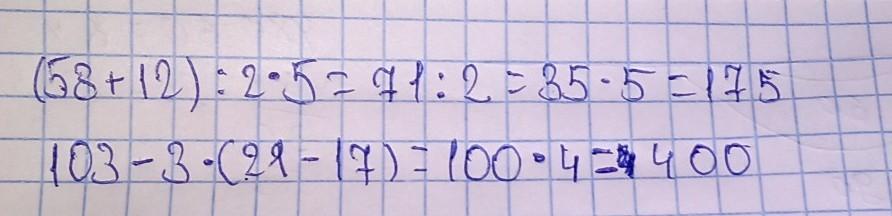 (58+12):2·5=71:2=35·5=175
103-3·(21-17)=100·4=400